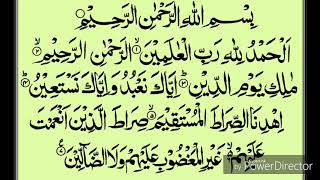 بِسْمِ اللّٰهِ الرَّحْمٰنِ الرَّحِيْمِ
اَلْحَمْدُ لِلّٰهِ رَبِّ الْعٰلَمِيْنَ ۙ﴿۱﴾ الرَّحْمٰنِ الرَّحِيْمِ ۙ﴿۲﴾
مٰلِكِ يَوْمِ الدِّيْنِ ؕ﴿۳﴾ اِيَّاكَ نَعْبُدُ وَاِيَّاكَ نَسْتَعِيْنُ ؕ﴿۴﴾
اِهْدِنَا الصِّرَاطَ الْمُسْتَقِيْمَ ۙ﴿۵﴾ صِرَاطَ الَّذِيْنَ اَنْعَمْتَ
عَلَيْهِمْ ۙ﴿۶﴾ غَيْرِ الْمَغْضُوْبِ عَلَيْهِمْ وَلَا الضَّآلِّيْنَ
by PowerDirector